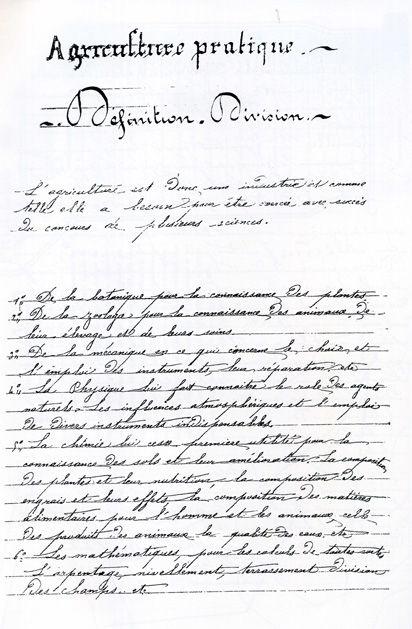 Agriculture pratique.
Définition. Division.
L'agriculture est donc une industrie et comme
telle elle a besoin pour être exercée avec succès
du concours de plusieurs sciences.
1º De la botanique pour la connaissance des plantes
2º De la zoologie pour la connaissance des animaux de
leur élevage et de leurs soins
3º De la mécanique en ce qui concerne le choix et
l'emploi des instruments, leur réparation etc
4º La Physique lui fait connaitre le role des agents
naturels. Les influences atmosphériques et l'emploi
de divers instruments indispensables.
5º La chimie lui est de première utilité pour la
connaissance des sols et leur amélioration la composition
des plantes et leur nutrition, la composition des
engrais et leurs effets la composition des matières
alimentaires pour l'homme et les animaux, celle
des produit des animaux la qualité des eaux, etc
6º Les mathématiques, pour les calculs de toutes sorte
L'arpentage, nivellement, terrassement division
des champs. etc